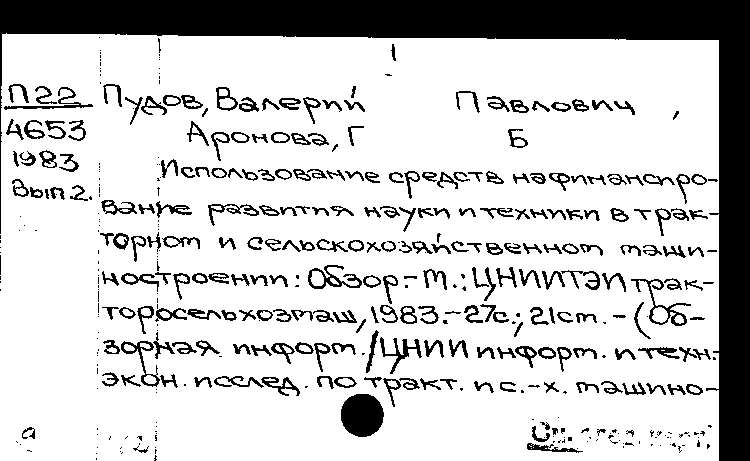 П22 Пудов, Валерий Павлович,
4653 Аронова, Г Б
1983 Использование средств на финансиро-
Вып.2. вание развития науки и техники в трак-
торном и сельскохозяйственном маши-
ностроении: Обзор.- М.: ЦНИИТЭИтрак-
торосельхозмаш, 1983.-27с.; 21см. - (Об-
зорная информ. / ЦНИИ информ. и техн.-
экон. исслед. по тракт. и с.-х. машино-
а См. след. карт.